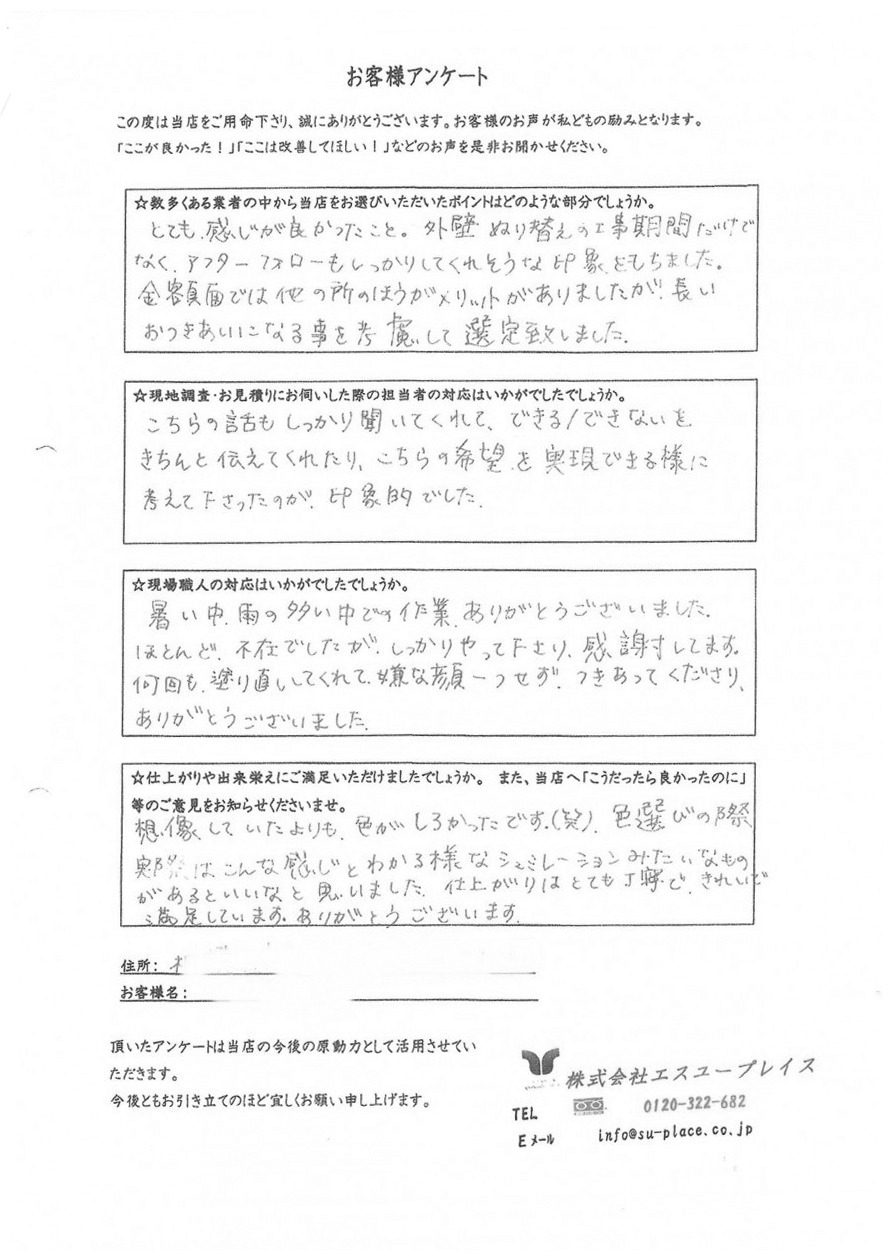 お客様アンケート
この度は当店をご用命下さり、誠にありがとうございます。お客様のお声が私どもの励みとなります。
「ここが良かった！」「ここは改善してほしい！」などのお声を是非お聞かせください。
☆数多くある業者の中から当店をお選びいただいたポイントはどのような部分でしょうか。
とても感じが良かったこと。外壁ぬり替えの工事期間だけで
なく、アフターフォローもしっかりしてくれそうな印象をもちました。
金額面では他の所のほうがメリットがありましたが、長い
おつきあいになる事を考慮して選定致しました。
☆現地調査・お見積りにお伺いした際の担当者の対応はいかがでしたでしょうか。
こちらの話もしっかり聞いてくれて、できる/できないを
きちんと伝えてくれたり、こちらの希望を実現できる様に
考えて下さったのが、印象的でした。
☆現場職人の対応はいかがでしたでしょうか。
暑い中、雨の多い中での作業、ありがとうございました。
ほとんど、不在でしたが、しっかりやって下さり、感謝してます。
何回も、塗り直してくれて、嫌な顔一つせず、つきあってくださり、
ありがとうございました。
☆仕上がりや出来栄えにご満足いただけましたでしょうか。 また、当店へ「こうだったら良かったのに」
等のご意見をお知らせくださいませ。
想像していたよりも、色がしろかったです。(笑)、色選びの際
実際はこんな感じとわかる様なシュミレーションみたいなもの
があるといいなと思いました。仕上がりはとても丁寧で、きれいで
満足しています。ありがとうございます。
住所：
お客様名：
頂いたアンケートは当店の今後の原動力として活用させてい
ただきます。
今後ともお引き立てのほど宜しくお願い申し上げます。
株式会社エスユープレイス
TEL 0120-322-682
Eメール info@su-place.co.jp